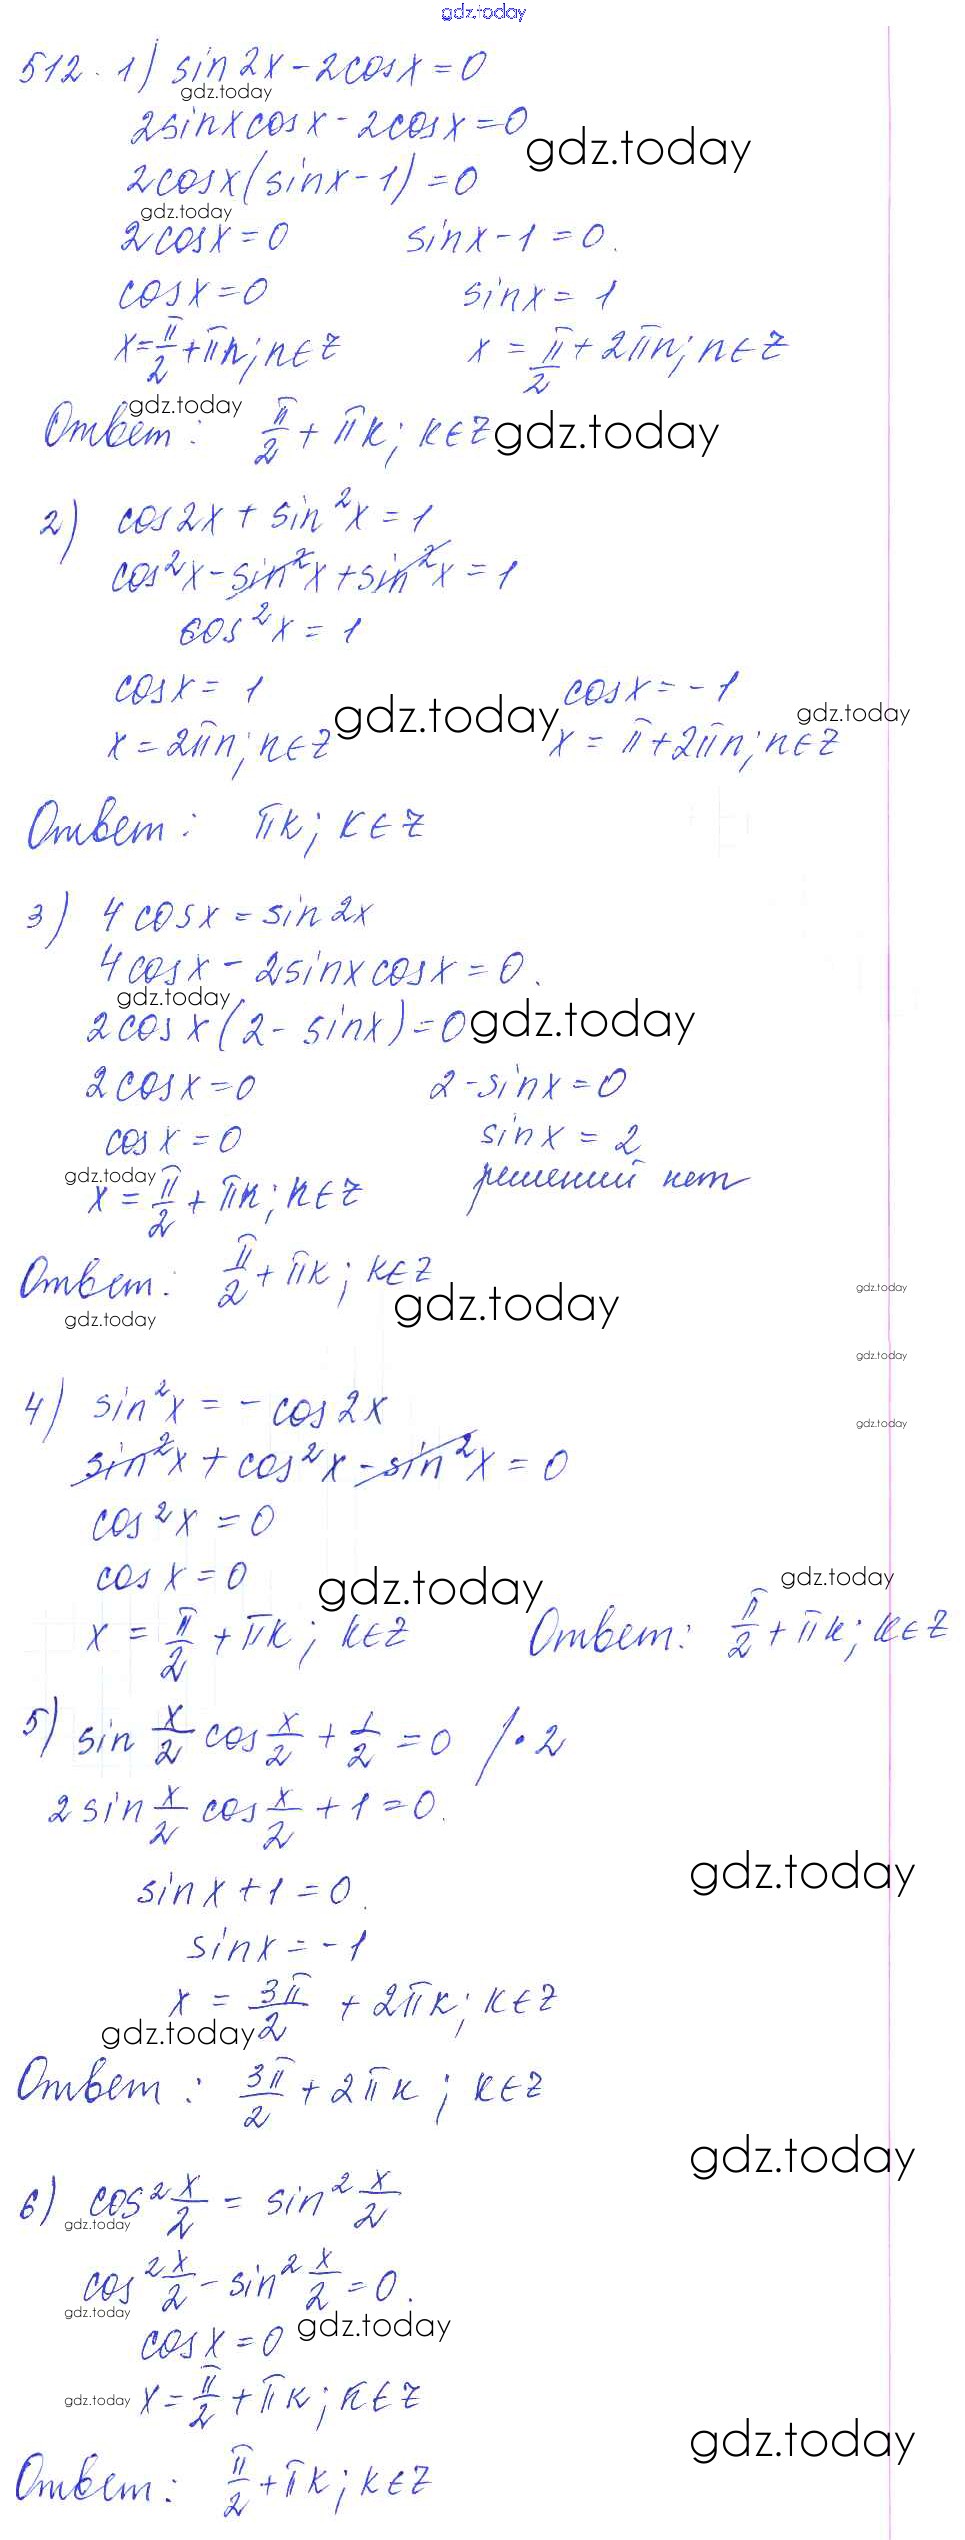 gdz.today
512. 1) sin2x - 2cosx = 0
gdz.today
2sinxcosx - 2cosx = 0
gdz.today
2cosx(sinx - 1) = 0
gdz.today
2cosx = 0 sinx - 1 = 0.
cosx = 0 sinx = 1
x = π/2 + πn; n∈Z x = π/2 + 2πn; n∈Z
gdz.today
Ответ: π/2 + πk; k∈Z gdz.today
2) cos2x + sin²x = 1
cos²x - sin²x + sin²x = 1
cos²x = 1
cosx = 1 cosx = -1
gdz.today gdz.today
x = 2πn; n∈Z x = π + 2πn; n∈Z
Ответ: πk; k∈Z
3) 4cosx = sin2x
4cosx - 2sinxcosx = 0.
gdz.today
2cosx(2 - sinx) = 0 gdz.today
2cosx = 0 2 - sinx = 0
cosx = 0 sinx = 2
gdz.today
x = π/2 + πk; k∈Z решений нет
Ответ: π/2 + πk; k∈Z
gdz.today
gdz.today
gdz.today
gdz.today
4) sin²x = -cos2x
gdz.today
sin²x + cos²x - sin²x = 0
cos²x = 0
cosx = 0 gdz.today gdz.today
x = π/2 + πk; k∈Z Ответ: π/2 + πk; k∈Z
5) sin x/2 cos x/2 + 1/2 = 0 /·2
2sin x/2 cos x/2 + 1 = 0.
gdz.today
sinx + 1 = 0.
sinx = -1
x = 3π/2 + 2πk; k∈Z
gdz.today
Ответ: 3π/2 + 2πk; k∈Z
gdz.today
6) cos² x/2 = sin² x/2
gdz.today
cos² x/2 - sin² x/2 = 0.
gdz.today
cosx = 0 gdz.today
gdz.today x = π/2 + πk; k∈Z
gdz.today
Ответ: π/2 + πk; k∈Z